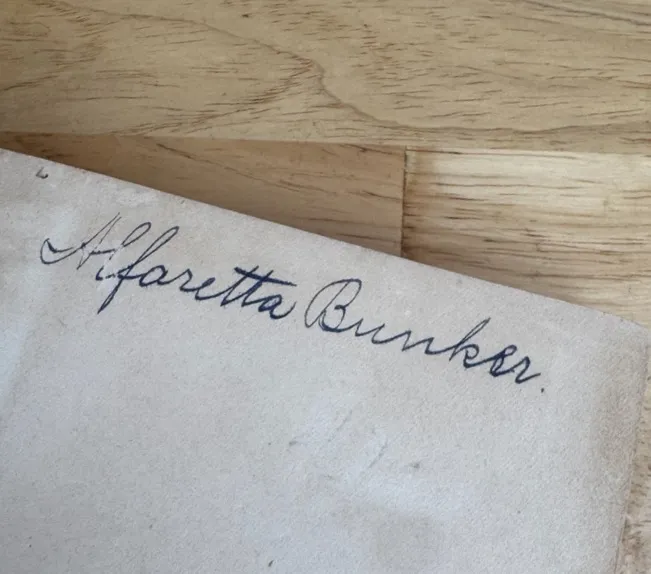 Alfaretta Bunker.